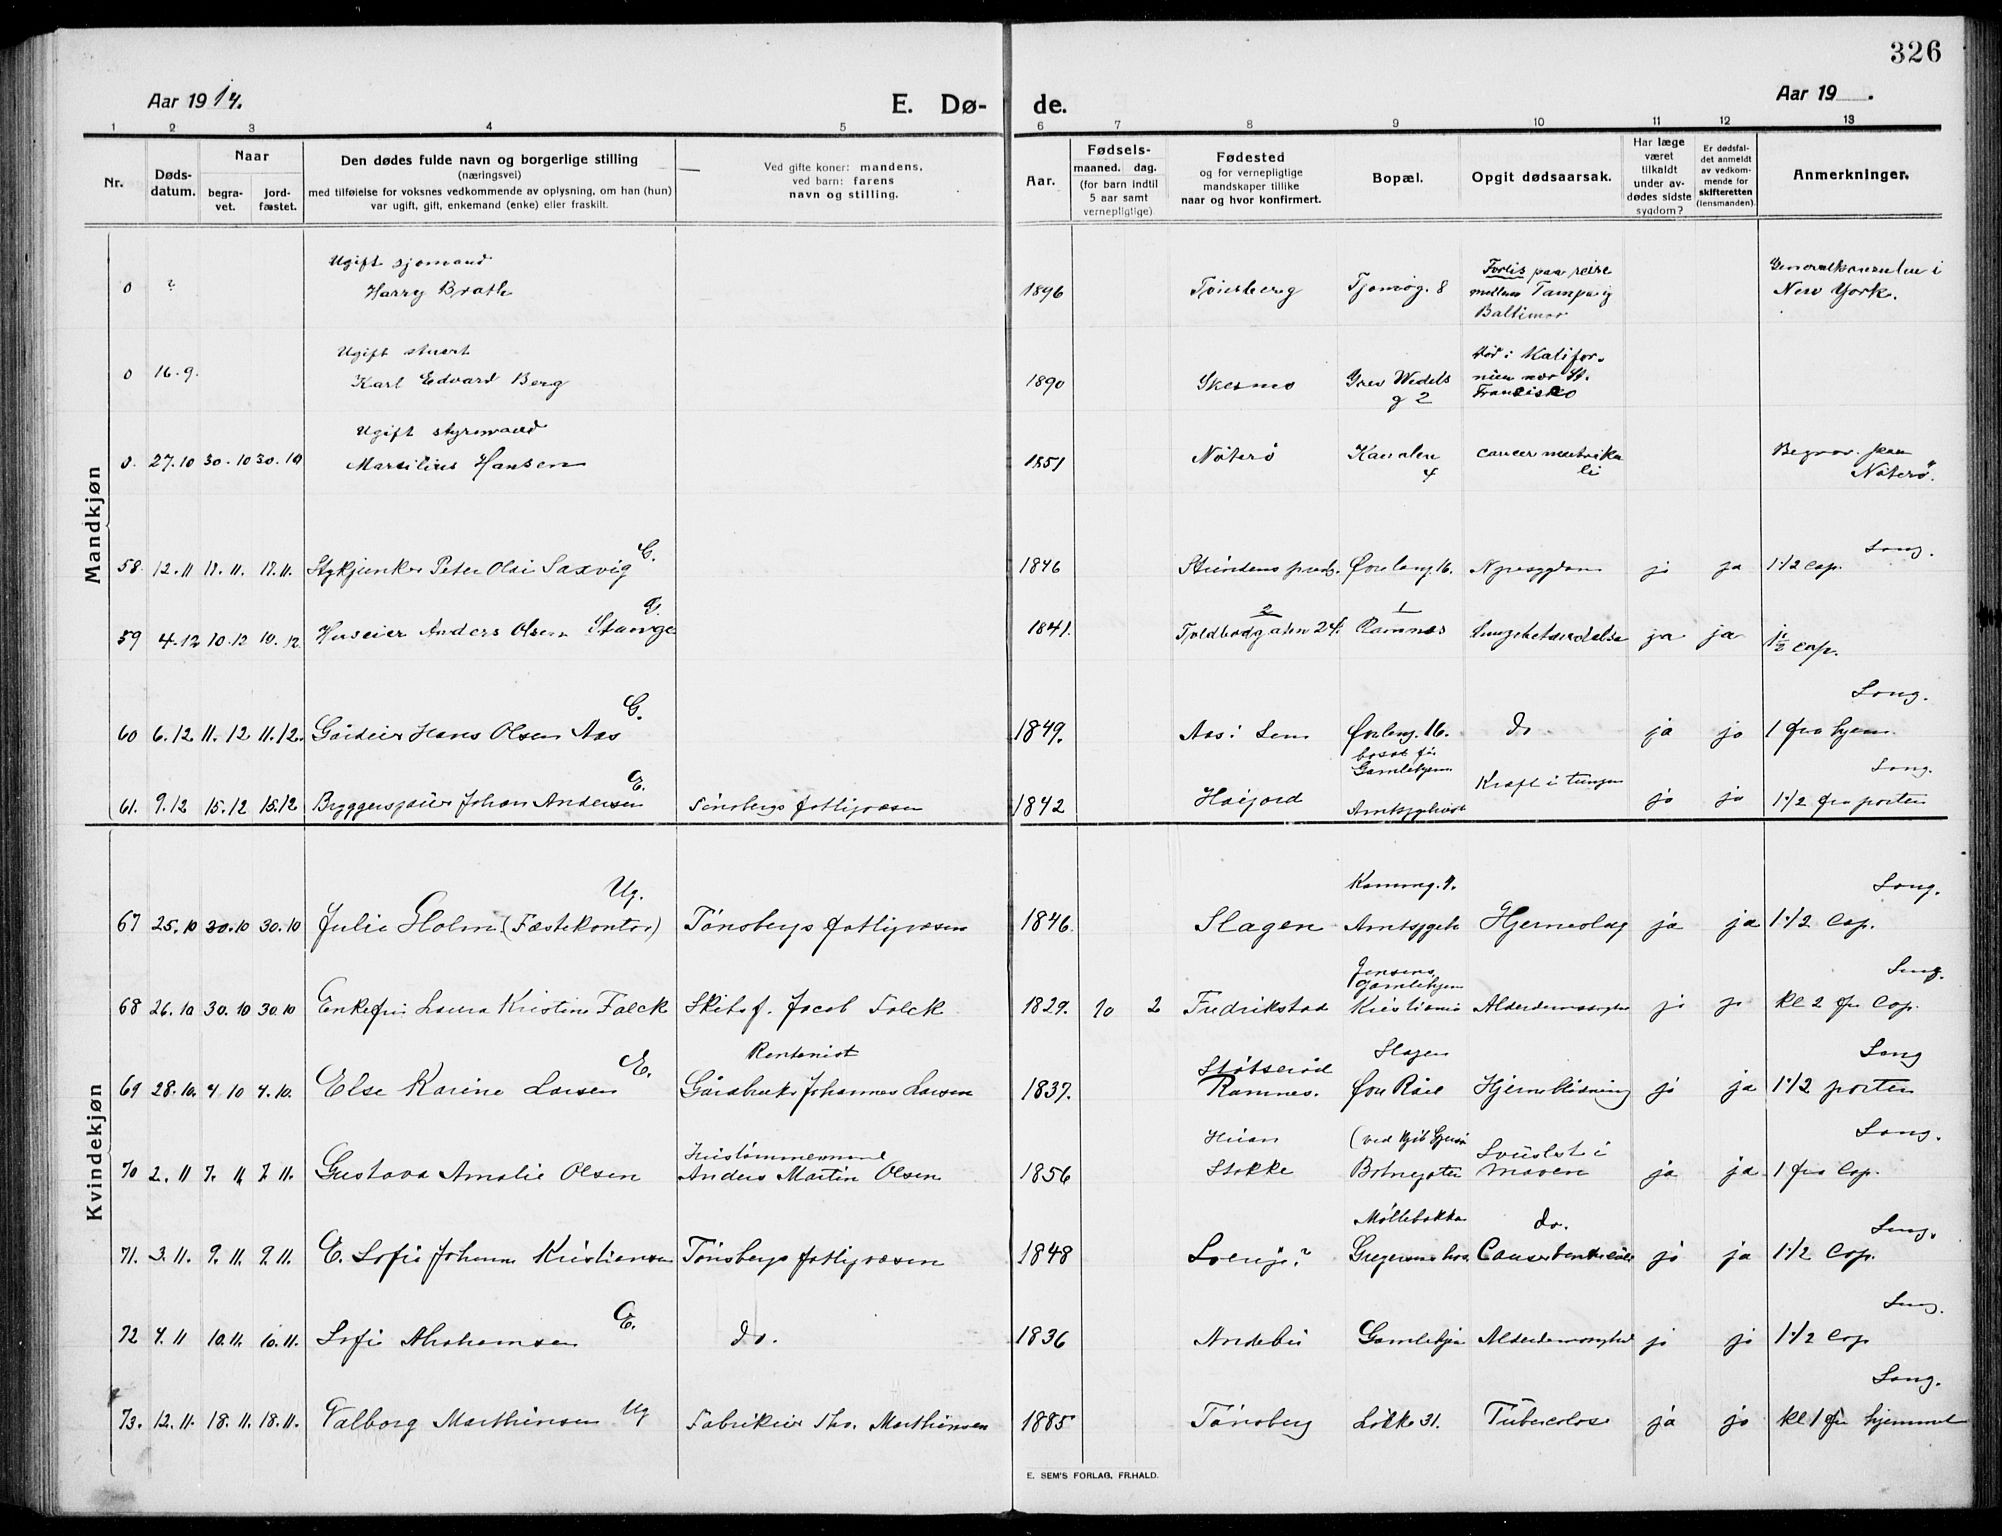 326
Aar 1914.
E. Dø-
de.
Aar 19 .
1 2 3 4 5 6 7 8 9 10 11 12 13
Nr.
Døds-
datum.
Naar
begra-
vet.
jord-
fæstet.
Den dødes fulde navn og borgerlige stilling
(næringsvei)
med tilføielse for voksnes vedkommende av oplysning, om han (hun)
var ugift, gift, enkemand (enke) eller fraskilt.
Ved gifte koner: mandens,
ved barn: farens
navn og stilling.
Aar.
Fødsels-
maaned. dag.
(for barn indtil
5 aar samt
vernepligtige)
Fødested
og for vernepligtige
mandskaper tillike
naar og hvor konfirmert.
Bopæl.
Opgit dødsaarsak.
Har læge
været
tilkaldt
under av-
dødes sidste
sygdom?
Er dødsfal-
det anmeldt
av vedkom-
mende for
skifteretten
(lensmanden).
Anmerkninger.
Mandkjøn
Ugift sjømand
0 ? Harry Brath 1896 Tønsberg Tjømøg. 8
Forlis paa reise
mellem Tampa og
Baltimor
Generalkonsulen i
New York.
Ugift stuert
0 16.9. Karl Edvard Berg 1890 Skesmo Grev Wedels
g 2
død i Kalifor-
nien nær St.
Francisko
Ugift styrmand
0. 27.10 30.10 30.10 Marsilius Hansen 1851 Nøterø Kanalen
4
cancer
Begrav. paa
Nøterø.
58. 12.11 17.11. 17.11. Stykjunker Peter Olai Saxvig G. 1846 Øvrelang. 16. Nyresygdom ja ja 1 1/2 Cap. Song.
59 4.12 10.12 10.12 Huseier Anders Olsen Stange G. 1841. 2 Toldbodgaten 24. 1 Ramnes Lungebetændelse ja ja 1 1/2 Cap.
60 6.12 11.12 11.12. Gårdeier Hans Olsen Aas G. 1849. Aas i Sem Øvrelang. 16. do ja ja 1 fra hjem. Song.
bosat før
Gamlehjem
61. 9.12 15.12 15.12 Johan Andersen E. Tønsbergs fattigvæsen 1842 Høijord Amtssygehuset Kræft i tungen ja ja 1 1/2 fra porten Song.
Kvindekjøn
67 25.10 30.10 30.10 Julie Holm (Fæstekontor) Ug. Tønsbergs fattigvæsen 1846. Slagen Kammeg. 4.
Amtssygeh Hjerneslag ja ja 1 1/2 Cap. Song.
68 26.10 30.10 30.10 Enkefru Laura Kristine Falck Skibsf. Jacob Falck 1829. 10 2 Fredrikstad Jensens
Gamlehjem
Kristiania Alderdomssvaghed ja ja kl 2 fra Cap. Song.
69 28.10. 4.10 4.10. Else Karine Larsen E. Rentenist
Gårdbruk. Johannes Larsen 1837. Støtserød
Ramnes. Slagen
Øvre Råel Hjerneblødning ja ja 1 1/2 porten Song
70 2.11 7.11 7.11. Gustava Amalie Olsen Hustømmermand
Anders Martin Olsen 1856 Stokke (ved
Svulst i
maven ja ja 1 fra Cap. Song.
71. 3.11. 9.11. 9.11. E. Sofie Johanne Kristiansen Tønsbergs fattigvæsen 1848 Møllebakken
do.
Cancer ventriculi ja ja 1 1/2 Cap. Song.
72 4.11 10.11. 10.11. Sofie Abrahamsen E. do. 1836 Andebu Gamlehjem Alderdomssvaghed ja ja 1 1/2 Cap Song.
73. 12.11. 18.11. 18.11. Valborg Marthinsen Ug Fabrikeier Thv. Marthinsen 1885 Tønsberg Løkke 31. Tuberculose ja ja kl 1 fra hjemmet Song.
E. SEM'S FORLAG, FR.HALD.